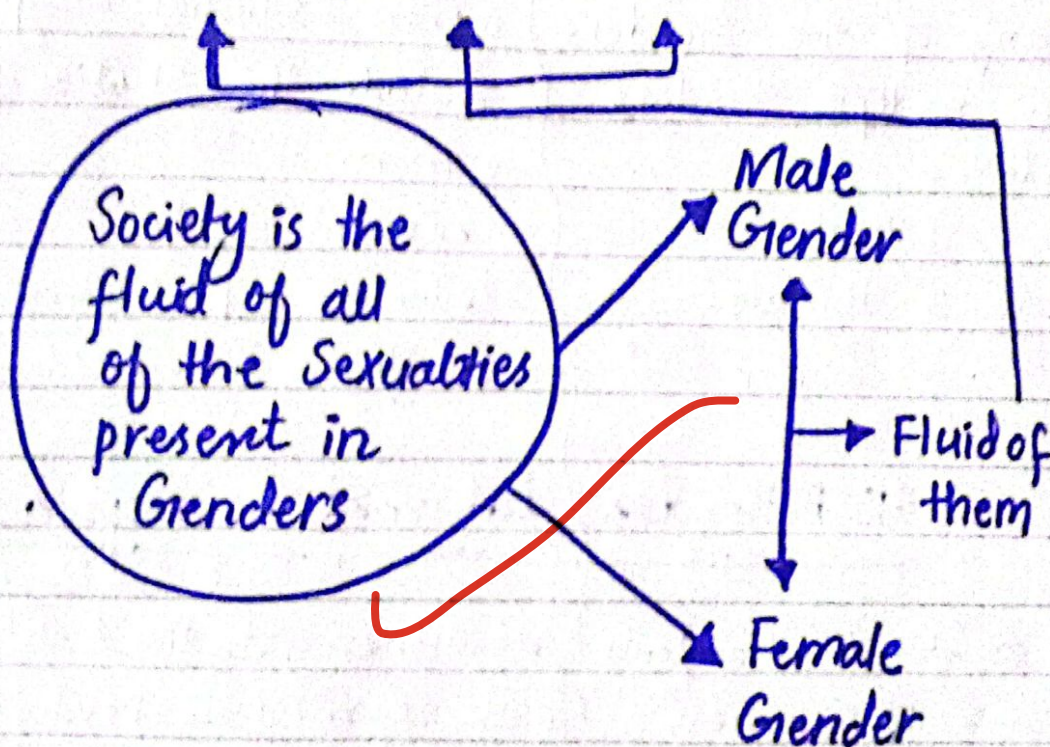 Society is the
fluid of all
of the Sexualties
present in
Genders
Male
Gender
Fluid of
them
Female
Gender